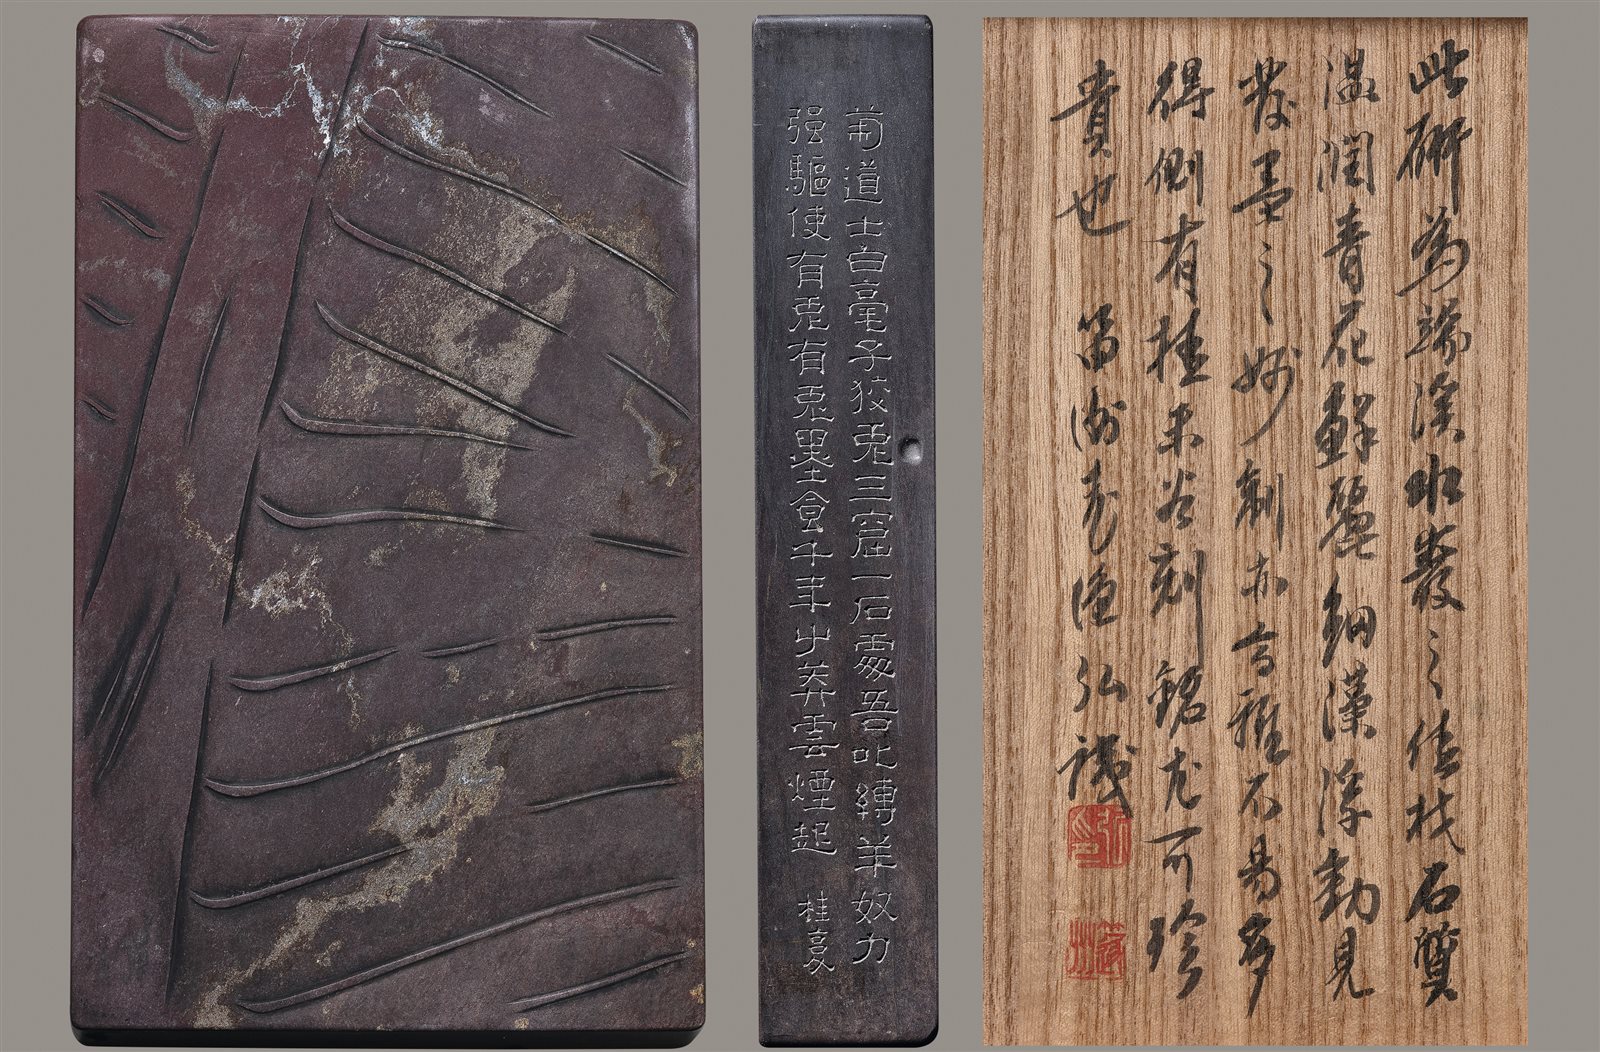 道士白毫子狡兎三窟一石處吾叱縛羊奴力
强驅使有兎有兎墨食千年屮莽雲煙起 桂
此研為端溪水巖之佳材石質
溫潤青花鮮麗細藻浮動見
發墨之妙制亦高雅不易多
得側有桂未谷刻銘尤可珍
貴也 笛洲老漁弘識